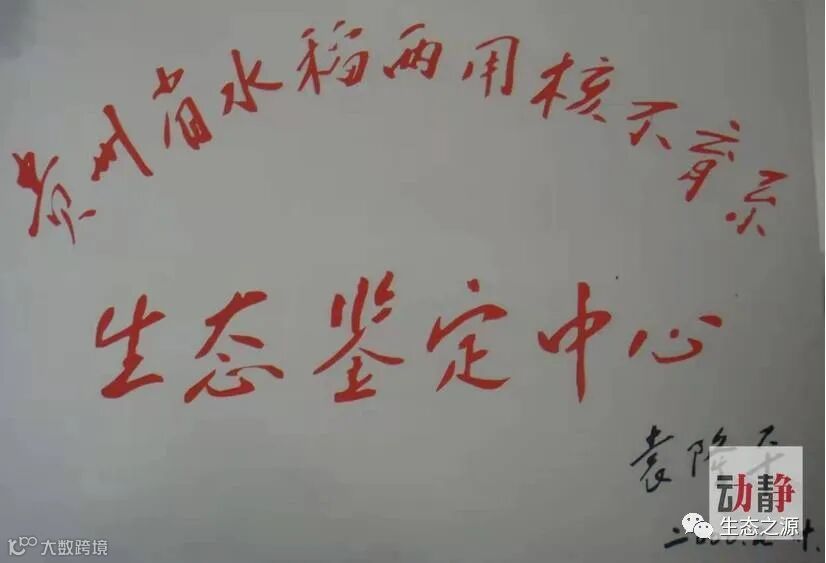 贵州省水稻两用核不育系
生态鉴定中心
袁隆平
动静
生态之源
大数跨境